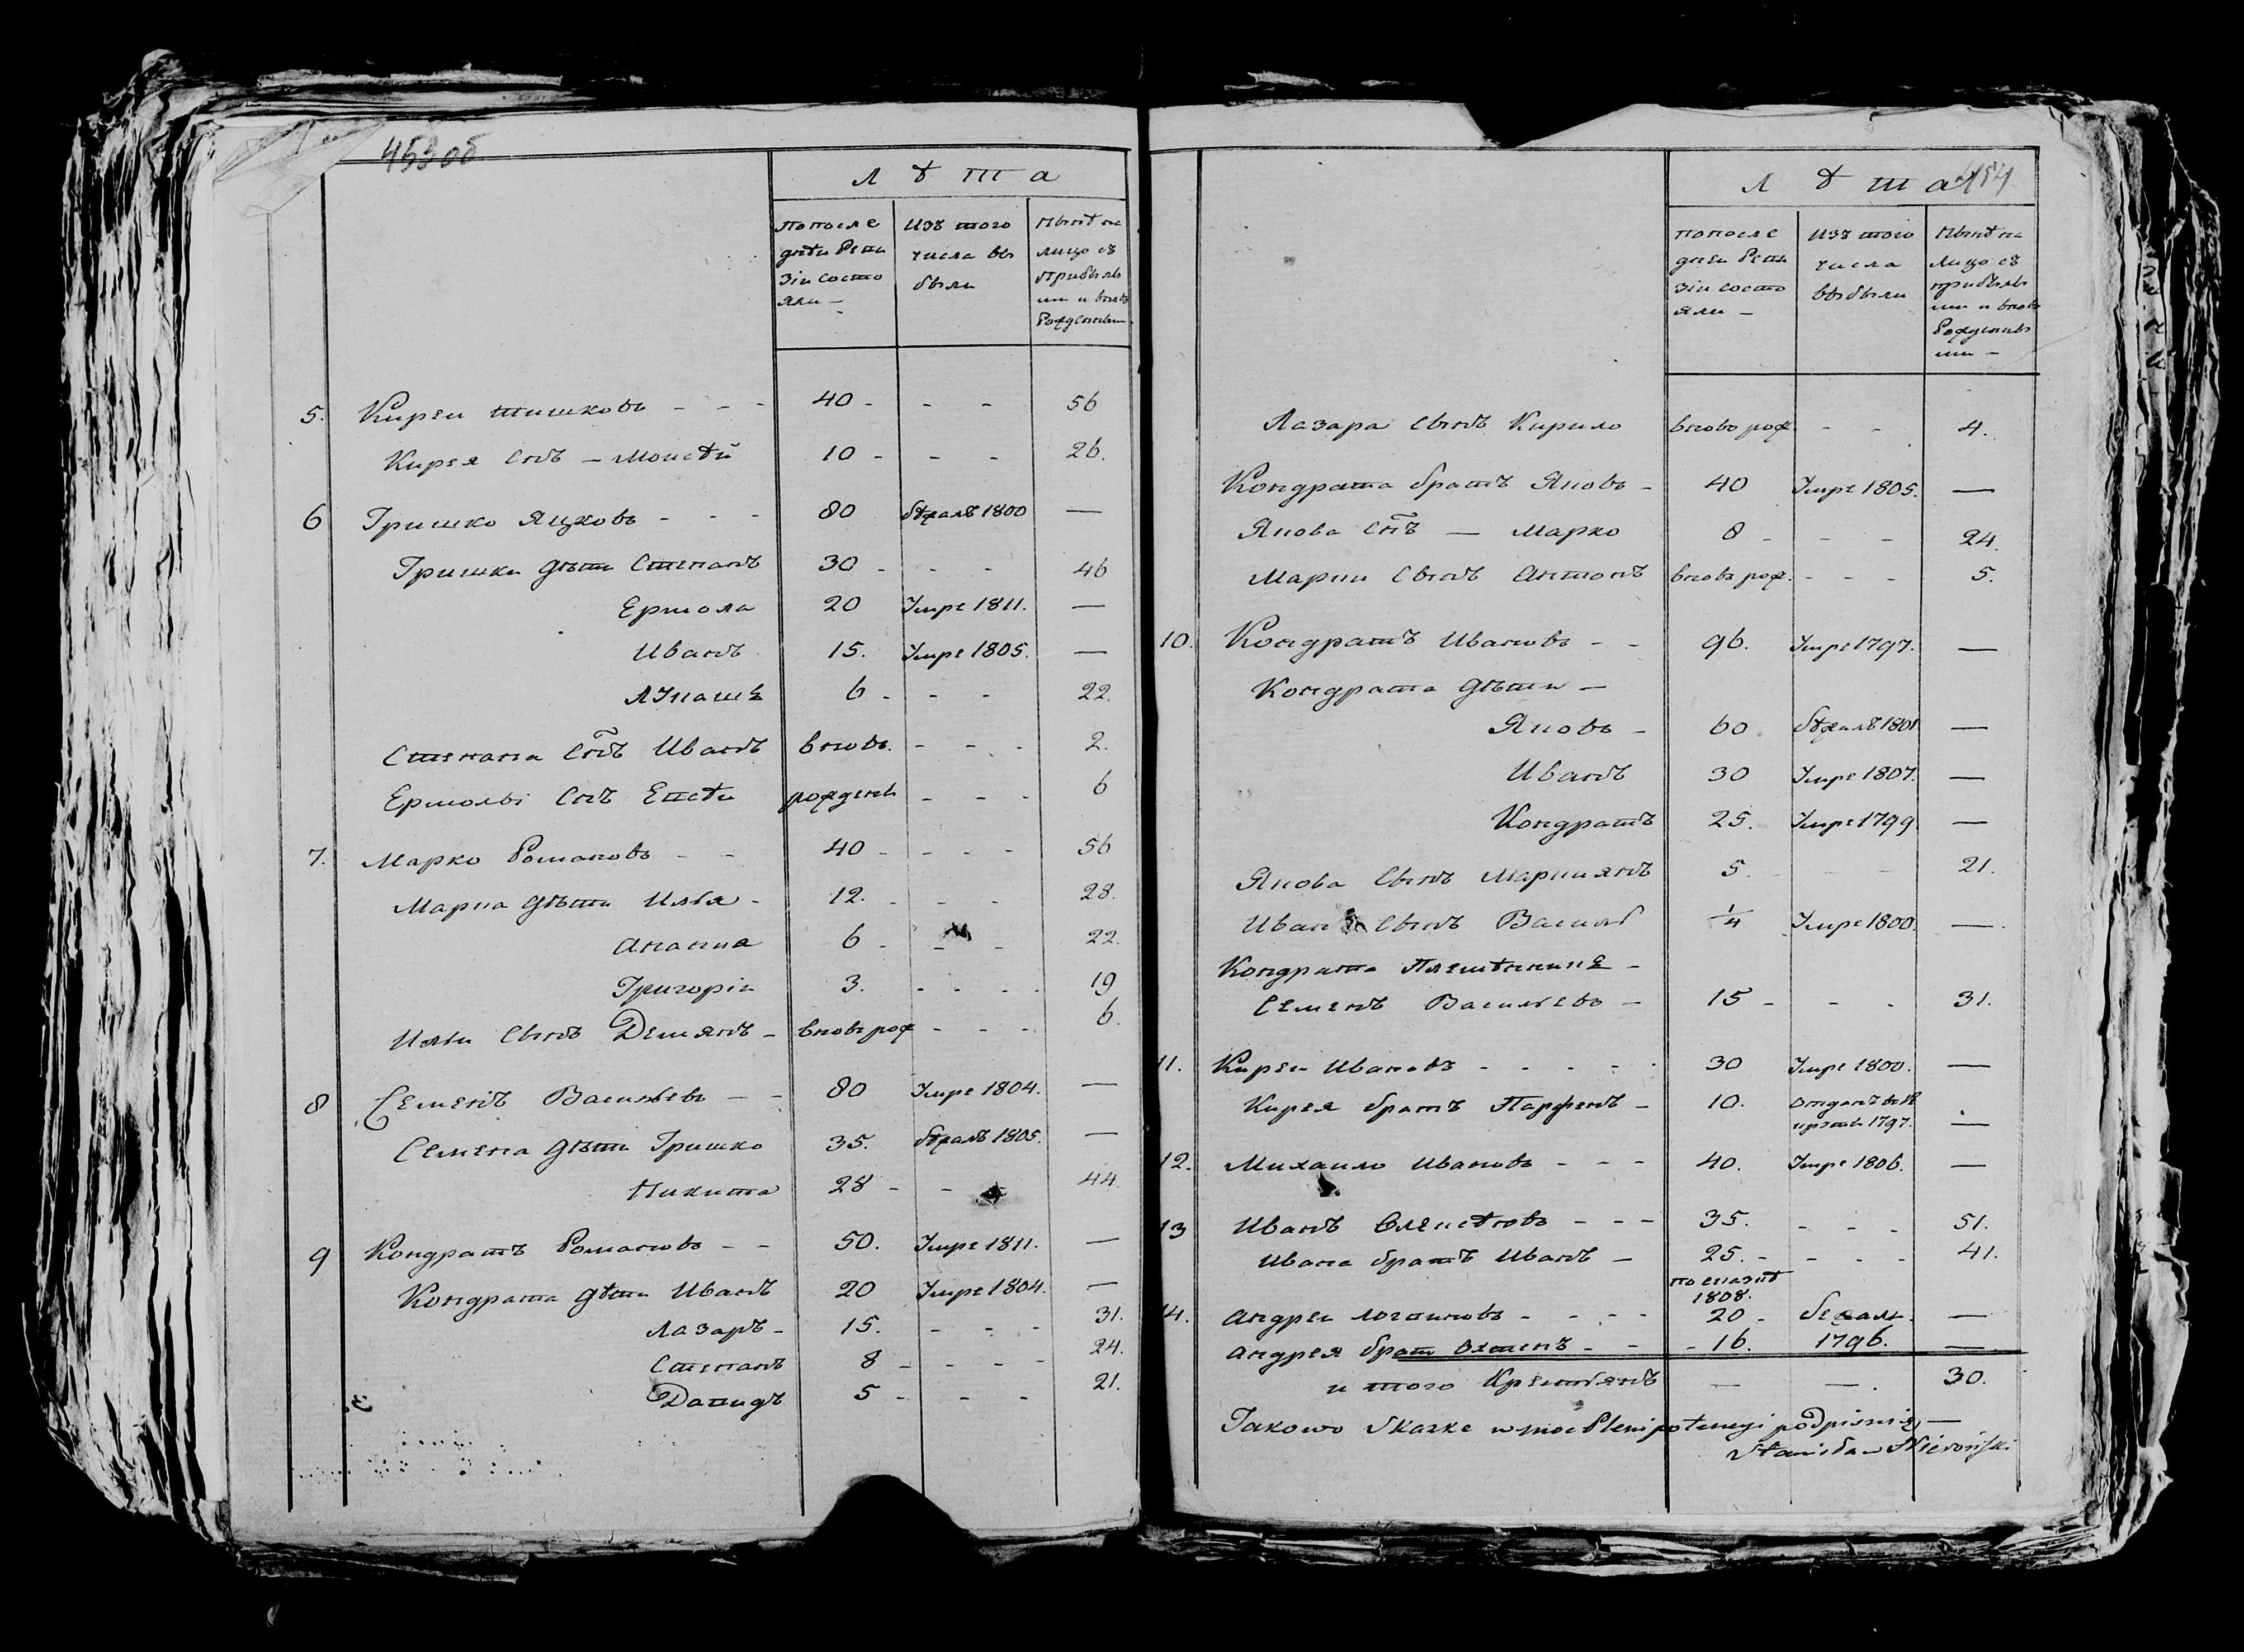 453 об
Л ѣ т а
по после
днѣи Реви
зіи состо
яли —
Изъ того
числа вы
были
Нынѣ на
лицо съ
прибылы
ми и вновь
Рожденны
5. Киреи Тишковъ - - - 40 - - - 56
Кирея Снъ — Моисѣй 10 - - - 26.
6 Гришко Яцковъ - - - 80 бѣжалъ 1800 —
Гришки дѣти Степанъ 30 - - - 46
Ермола 20 Умре 1811. —
Иванъ 15. Умре 1805. —
6 - - - 22.
Степана Снъ Иванъ вновь. - - - 2.
Ермолы Снъ Евсѣи рожденъ - - - 6
7. Марко Романовъ - - 40 - - - - 56
Марка дѣти Илья - 12. - - - 28.
Анания 6 - - - 22.
Григоріи 3. - - - - 19
Ильи Сынъ Демянъ - вновь рож - - - 6.
8 Семенъ Васильевъ — - 80 Умре 1804. —
Семена дѣти Гришко 35. бѣжалъ 1805. —
Никита 28 - - - 44.
9 Кондратъ Романовъ — - 50. Умре 1811. —
Кондрата дѣти Иванъ 20 Умре 1804. —
Лазаръ - 15. - - - 31.
Степанъ 8 - - - - 24.
Давидъ 5 - - - 21.
454
Л ѣ т а
по после
днеи Реви
зіи состо
яли —
Изъ того
числа
выбыли
Нынѣ на
лицо съ
прибылы
ми и вновь
Рожденны
ми —
Лазара Сынъ Кирило вновь рож. - - 4.
Кондрата братъ Яковъ - 40 Умре 1805. —
Якова Снъ — Марко 8 - - - 24.
Марки Сынъ Антонъ вновь рож. - - - 5.
10. Кондратъ Ивановъ - - 96. Умре 1797. —
Кондрата дѣти —
Яковъ - 60 бѣжалъ 1801 —
Иванъ 30 Умре 1807. —
Кондратъ 25. Умре 1799 —
Якова Сынъ Мариянъ 5. - - - 21.
Ивана Сынъ Василь 1/4 Умре 1800. —
Кондрата Племѣнникъ -
Семенъ Васильевъ - 15 - - - 31.
11. Киреи Ивановъ - - - - - 30 Умре 1800. —
Кирея братъ Парфенъ - 10. отданъ въ ре
круты 1797. —
12. Михаило Ивановъ - - - 40. Умре 1806. —
13 Иванъ Олеисѣовъ - - - 35. - - - 51.
Ивана братъ Иванъ - 25. - - - - 41.
по сказкѣ
1808.
14. Андреи Логвиновъ - - - - 20 - бежали —
Андрея брат - - - 16. 1796. —
и того Крестьянъ — —. 30.
Takowo Skazke w moc Plenipotencyi podpisuię —
Stanisław